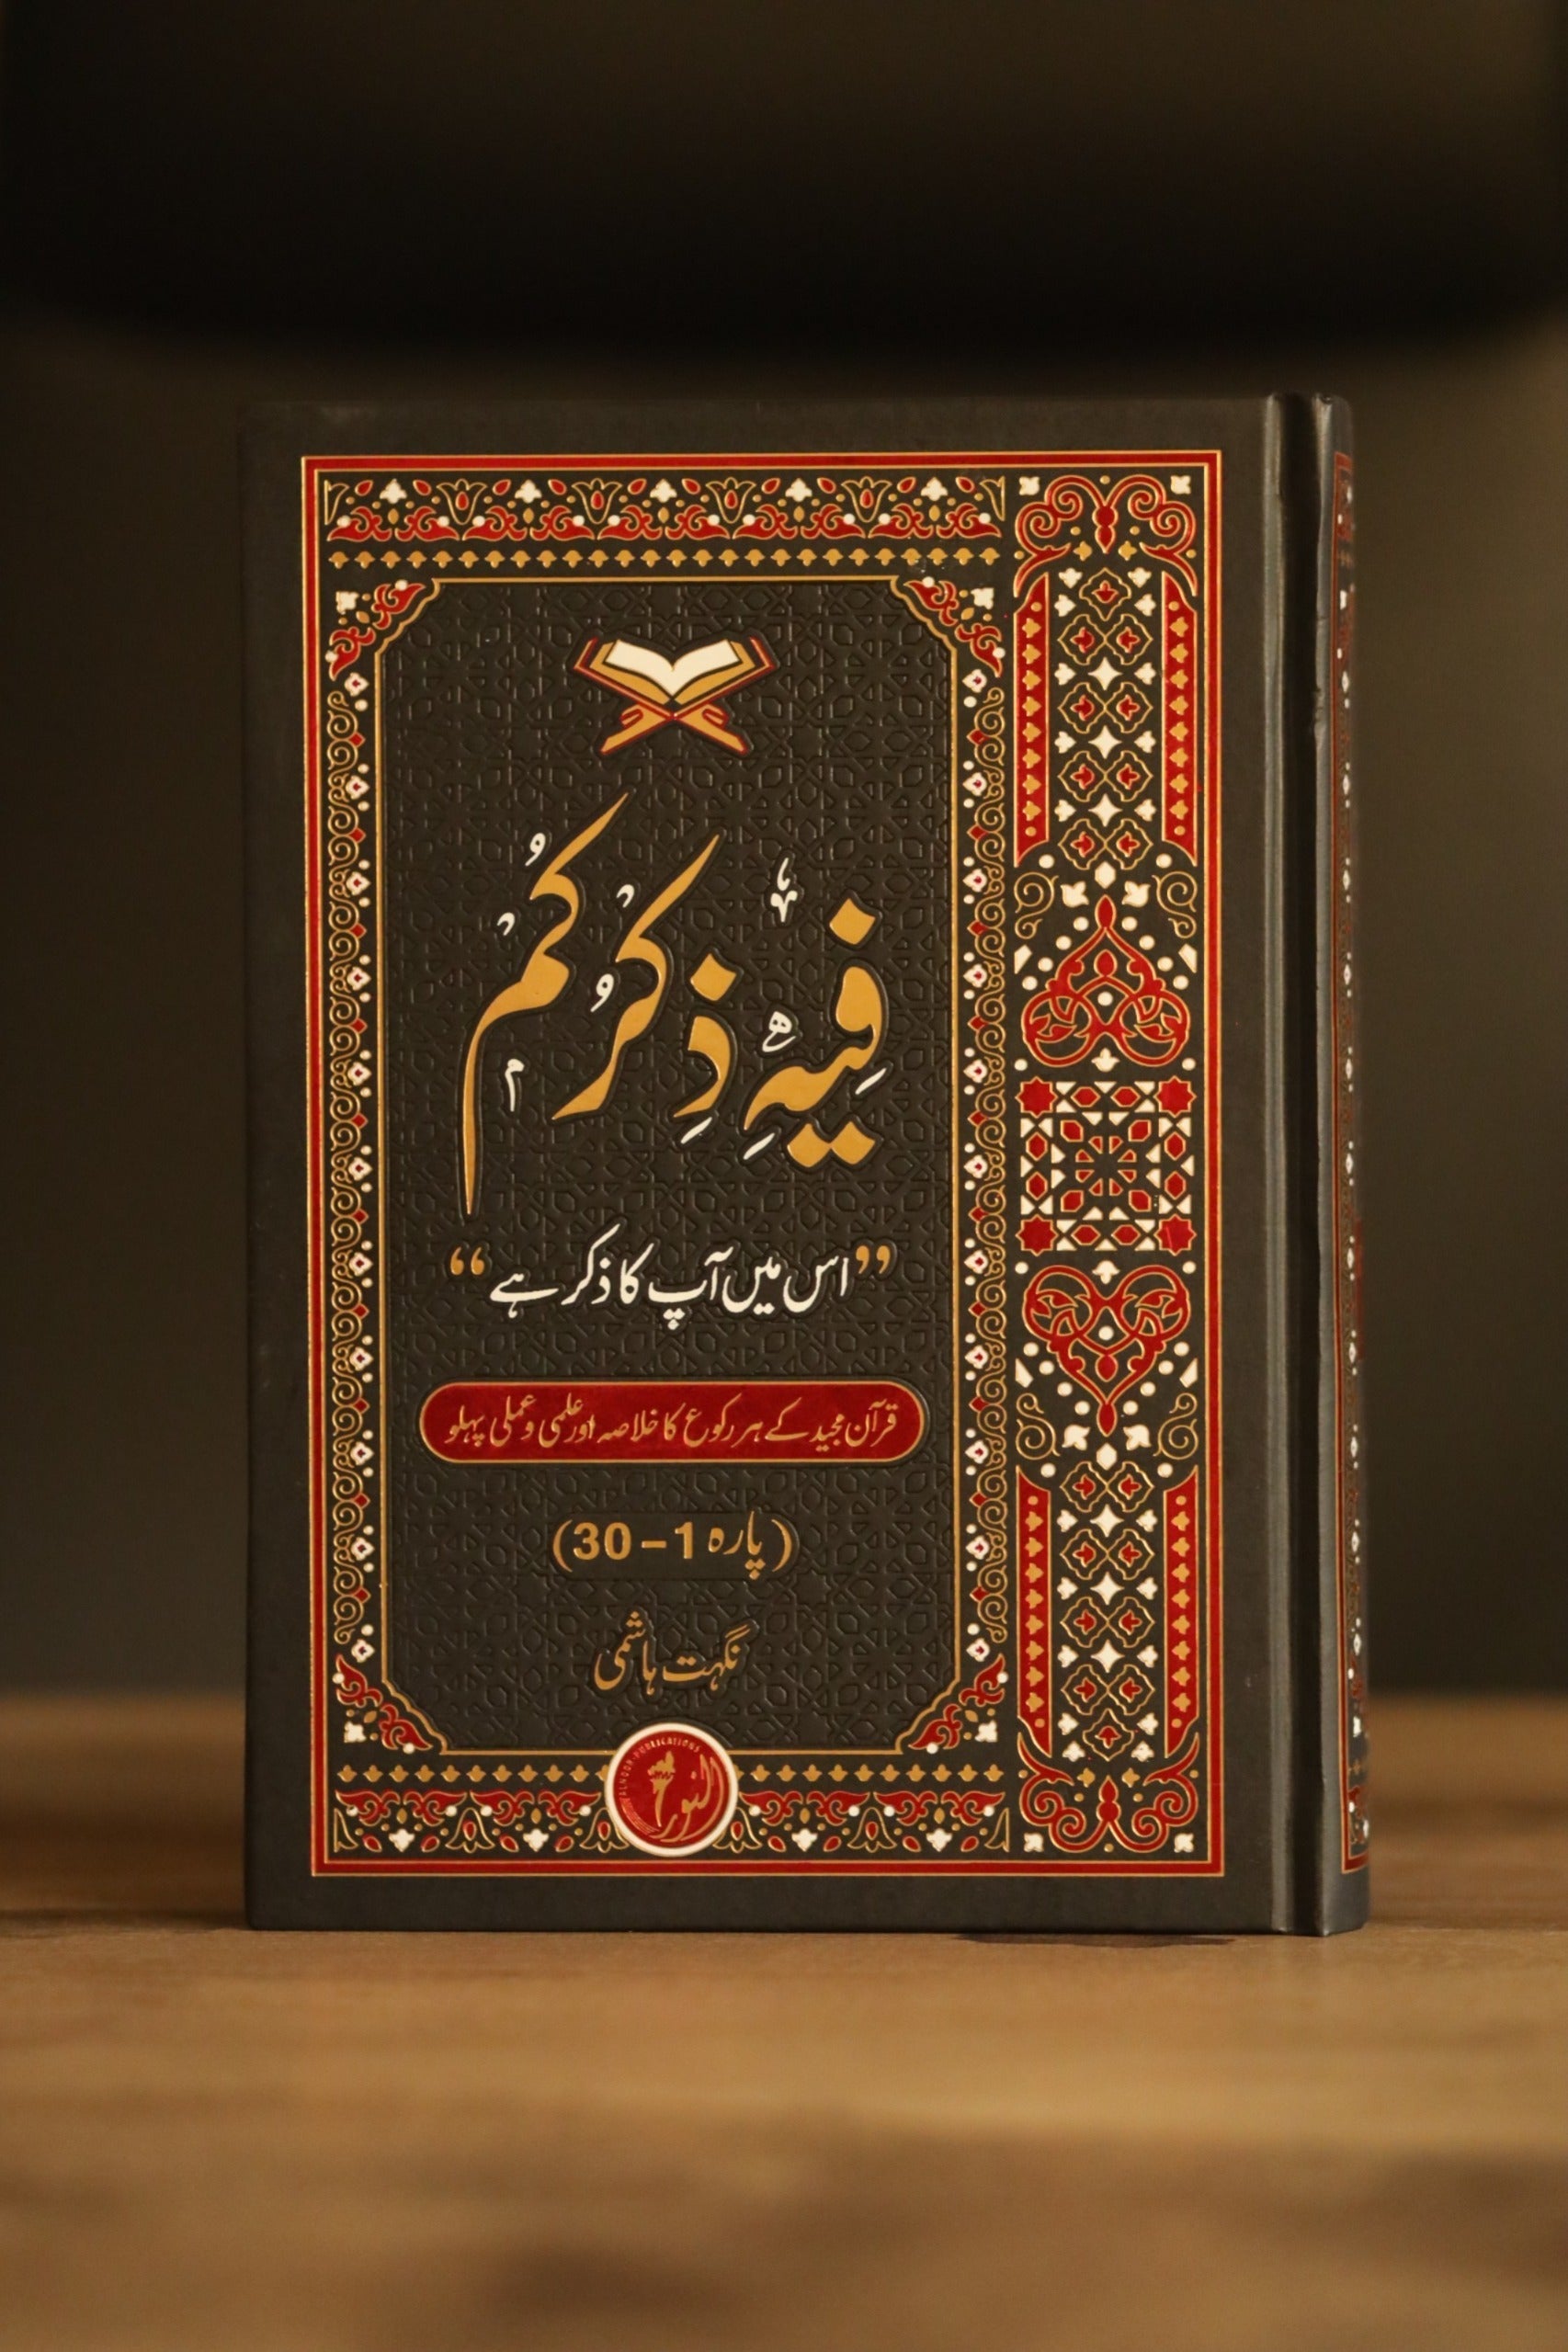 فِیْهِ ذِكْرُكُمْ
”اس میں آپ کا ذکر ہے“
قرآن مجید کے ہر رکوع کا خلاصہ اور علمی و عملی پہلو
(پارہ 1 – 30)
نگہت ہاشمی
النور
ALNOOR PUBLICATIONS